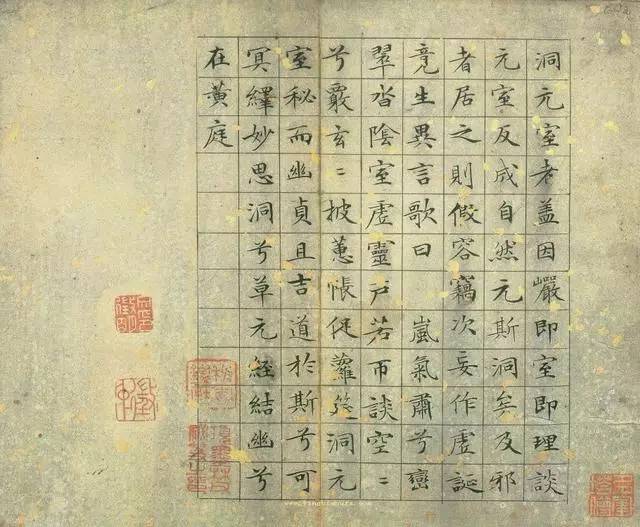 洞元室者盖因巖即室即理談
元室反成自然元斯洞矣及邪
者居之則假容竊次妄作虛誕
竞生異言歌曰 嵐氣肅兮巒
翠沓陰室虛靈戶若帀談空〻
兮覈玄〻披蕙帳促蘿筵洞元
室秘而幽貞且吉道於斯兮可
冥繹妙思洞兮草元經結幽兮
在黃庭